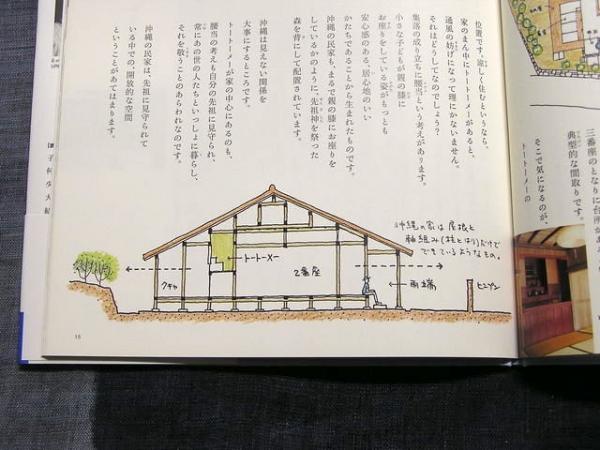 位置です。涼しく住むというなら、
家のまん中にトートーメーがあると、
通風の妨げになって理にかないません。
それはどうしてなのでしょう?
集落の成り立ちに腰当という考えがあります。
小さな子どもが親の膝に
お座りをしている姿がもっとも
安心感のある、居心地のいい
かたちであることから生まれたものです。
沖縄の民家も、まるで親の膝にお座りを
しているかのように、先祖神を祭った
森を背にして配置されています。
沖縄は見えない関係を
大事にするところです。
トートーメーが家の中心にあるのも、
腰当の考えも自分の先祖に見守られ、
常にあの世の人たちといっしょに暮らし、
それを敬うことのあらわれなのです。
沖縄の民家は、先祖に見守られて
いる中での、開放的な空間
ということがあてはまります。
三番座のとなりに台所が
典型的な間取りです。
そこで気になるのが、
トートーメーの
沖縄の家は屋根と
軸組み(柱とはり)だけで
できているようなもの。
トートーメー
クチャ
2番座
雨端
ヒンプン
16